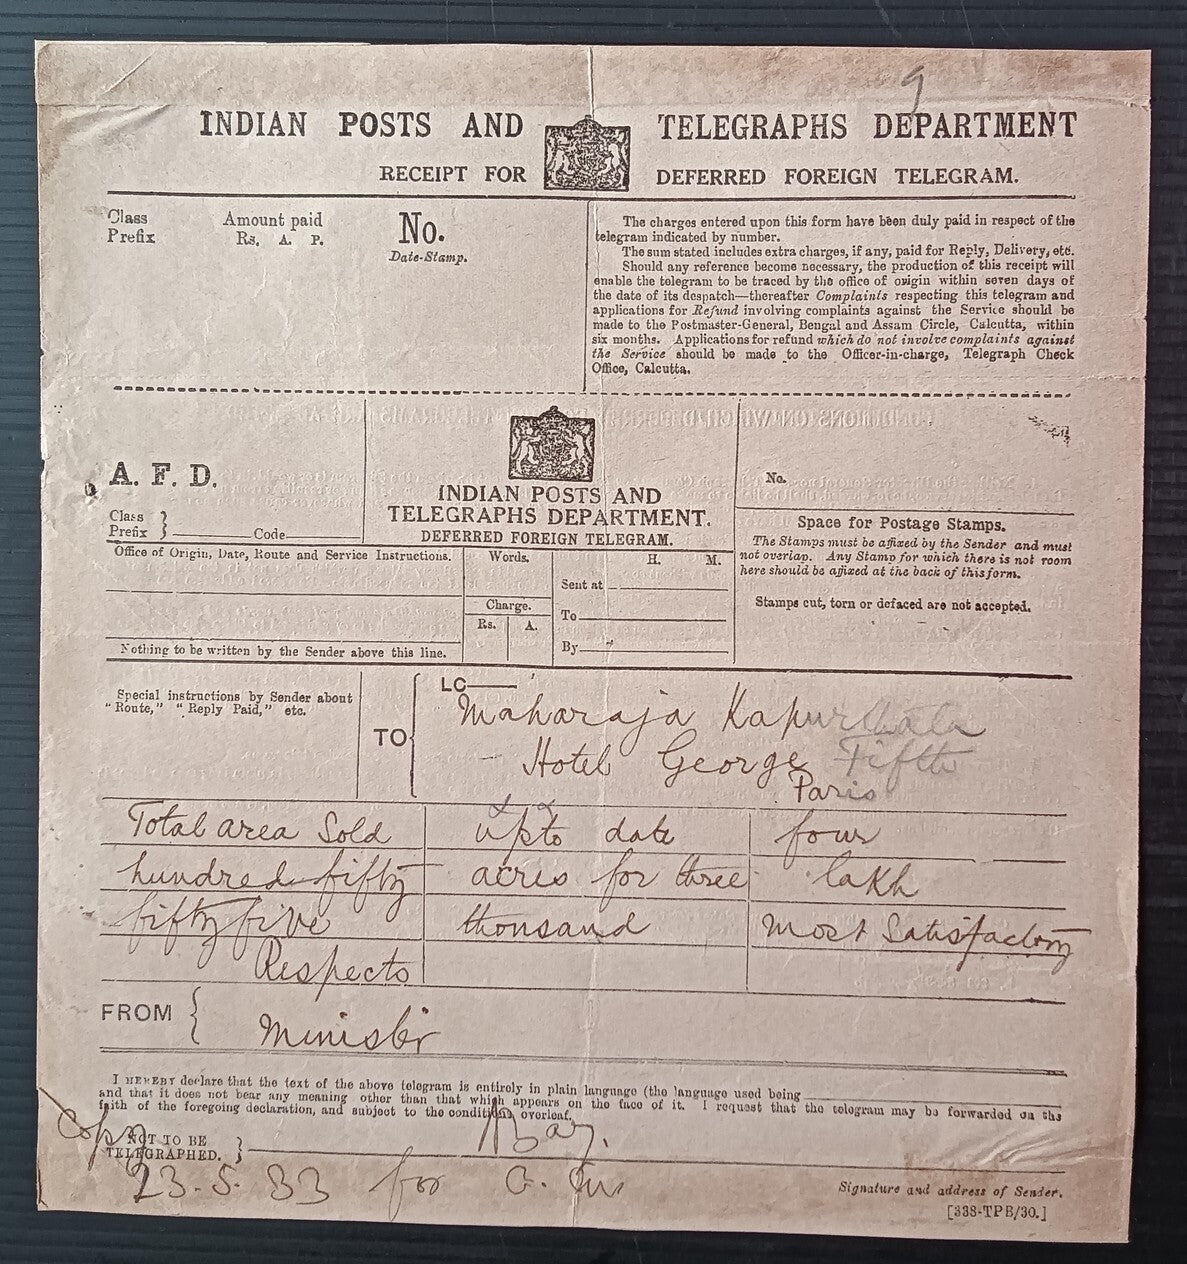 9
INDIAN POSTS AND TELEGRAPHS DEPARTMENT
RECEIPT FOR DEFERRED FOREIGN TELEGRAM.
Class Prefix
Amount paid
Rs. A. P.
No.
Date-Stamp.
The charges entered upon this form have been duly paid in respect of the
telegram indicated by number.
The sum stated includes extra charges, if any, paid for Reply, Delivery, etc.
Should any reference become necessary, the production of this receipt will
enable the telegram to be traced by the office of origin within seven days of
the date of its despatch—thereafter Complaints respecting this telegram and
applications for Refund involving complaints against the Service should be
made to the Postmaster-General, Bengal and Assam Circle, Calcutta, within
six months. Applications for refund which do not involve complaints against
the Service should be made to the Officer-in-charge, Telegraph Check
Office, Calcutta.
A. F. D.
Class
Prefix } Code
INDIAN POSTS AND
TELEGRAPHS DEPARTMENT.
DEFERRED FOREIGN TELEGRAM.
No.
Space for Postage Stamps.
The Stamps must be affixed by the Sender and must
not overlap. Any Stamp for which there is not room
here should be affixed at the back of this form.
Stamps cut, torn or defaced are not accepted.
Office of Origin, Date, Route and Service Instructions.
Words.
Charge.
Rs. A.
H. M.
Sent at
To
By
Nothing to be written by the Sender above this line.
Special instructions by Sender about
"Route," "Reply Paid," etc.
TO
LC
Maharaja Kapurthala
Hotel George Fifth
Paris
Total area Sold upto date four
hundred fifty acres for three lakh
fifty five thousand most Satisfactory
Respects
FROM { Minister
I HEREBY declare that the text of the above telegram is entirely in plain language (the language used being
and that it does not bear any meaning other than that which appears on the face of it. I request that the telegram may be forwarded on the
faith of the foregoing declaration, and subject to the conditions overleaf.
Copy
NOT TO BE
TELEGRAPHED. }
23.5.33 for
Signature and address of Sender.
[338-TPB/30.]